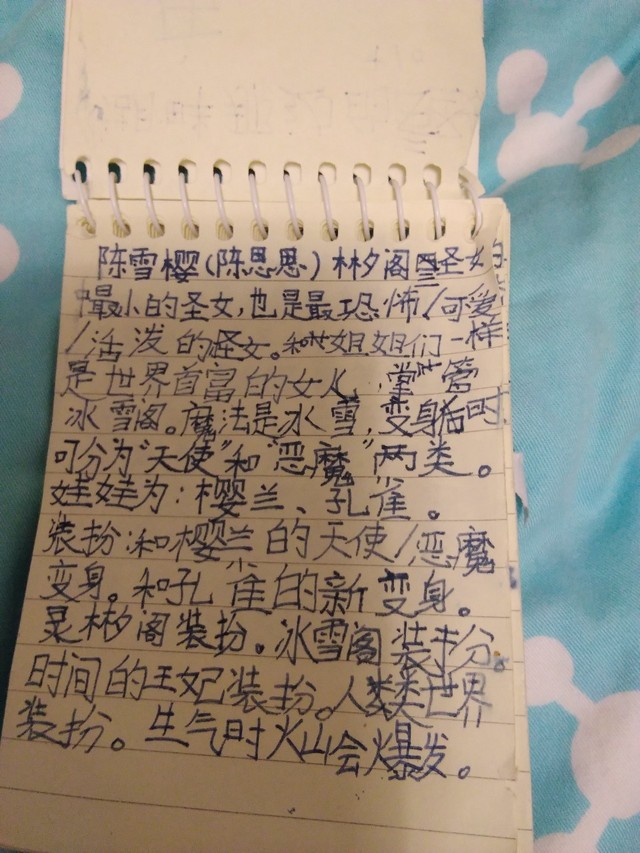 陈雪樱(陈思思)彬阁圣女的
最小的圣女,也是最恐怖/可爱
/活泼的圣女。和姐姐们一样
是世界首富的女人,掌管
冰雪阁。魔法是冰雪,变身后时
可分为“天使”和“恶魔”两类。
娃娃为:樱兰、孔雀。
装扮:和樱兰的天使/恶魔
变身。和孔雀的新变身。
灵彬阁装扮。冰雪阁装扮。
时间的王妃装扮。人类世界
装扮。生气时火山会爆发。